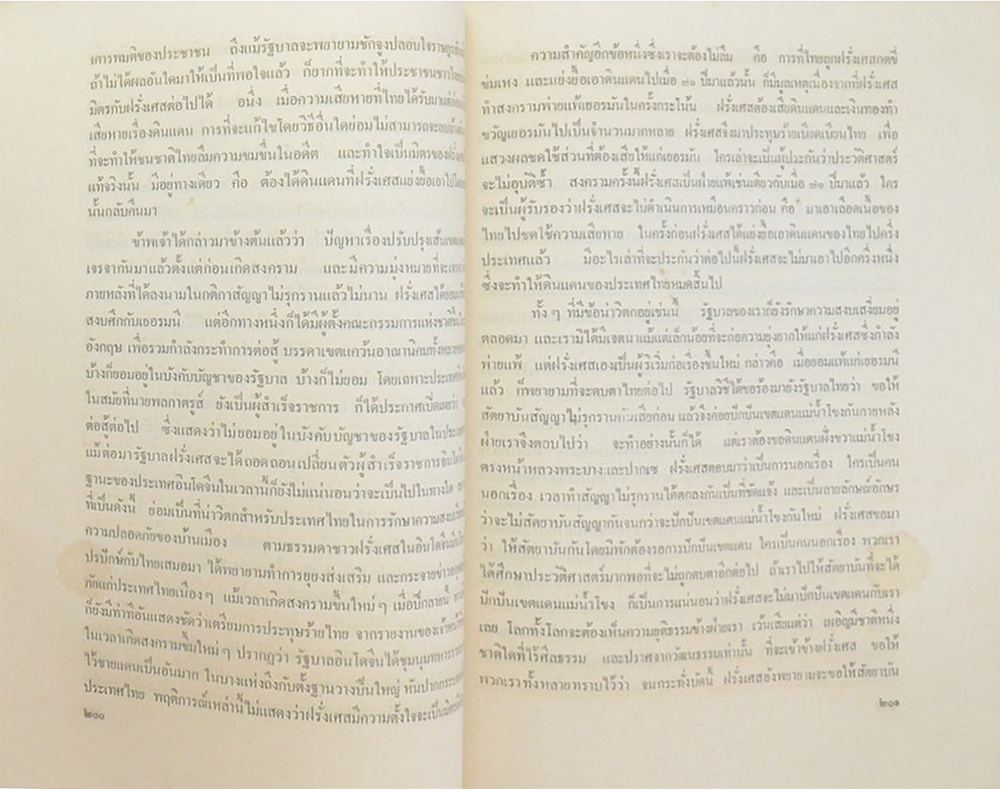 เคารพมติของประชาชน ถึงแม้รัฐบาลจะพยายามชักจูงปลอบใจราษฎร
ถ้าไม่ได้ผลอันใดมาให้เป็นที่พอใจแล้ว ก็ยากที่จะทำให้ประชาชนชาวไทย
มิตรกับฝรั่งเศสต่อไปได้ อนึ่ง เมื่อความเสียหายที่ไทยได้รับมา
เสียหายเรื่องดินแดน การที่จะแก้ไขโดยวิธีอื่นใดย่อมไม่สามารถจะ
ที่จะทำให้ชนชาติไทยลืมความขมขื่นในอดีต และทำใจเป็นมิตรของฝรั่งเศส
แท้จริงนั้น มีอยู่ทางเดียว คือ ต้องได้ดินแดนที่ฝรั่งเศสแย่งยื้อเอาไปโดย
นั้นกลับคืนมา
ข้าพเจ้าได้กล่าวมาข้างต้นแล้วว่า ปัญหาเรื่องปรับปรุงเส้นเขตแดน
เจรจากันมาแล้วตั้งแต่ก่อนเกิดสงคราม และมีความมุ่งหมายที่จะ
ภายหลังที่ได้ลงนามในกติกาสัญญาไม่รุกรานแล้วไม่นาน ฝรั่งเศสได้ยอม
สงบศึกกับเยอรมนี แต่อีกทางหนึ่งก็ได้มีผู้ตั้งคณะกรรมการแห่งชาติขึ้น
อังกฤษ เพื่อรวมกำลังกระทำการต่อสู้ บรรดาเขตแคว้นอาณานิคมทั้งหลาย
บ้างก็ยอมอยู่ในบังคับบัญชาของรัฐบาล บ้างก็ไม่ยอม โดยเฉพาะประเทศ
ในสมัยที่นายพลกาตรูส์ ยังเป็นผู้สำเร็จราชการ ก็ได้ประกาศเปิดเผยว่า
ต่อสู้ต่อไป ซึ่งแสดงว่าไม่ยอมอยู่ในบังคับบัญชาของรัฐบาลในประเทศ
แม้ต่อมารัฐบาลฝรั่งเศสจะได้ถอดถอนเปลี่ยนตัวผู้สำเร็จราชการอินโดจีน
ฐานะของประเทศอินโดจีนในเวลานี้ก็ยังไม่แน่นอนว่าจะเป็นไปในทางใด
ที่เป็นดังนี้ ย่อมเป็นที่น่าวิตกสำหรับประเทศไทยในการรักษาความสงบ
ความปลอดภัยของบ้านเมือง ตามธรรมดาชาวฝรั่งเศสในอินโดจีน
ปรปักษ์กับไทยเสมอมา ได้พยายามทำการยุยงส่งเสริม และกระจายข่าว
ภัยแก่ประเทศไทยเนืองๆ แม้เวลาเกิดสงครามขึ้นใหม่ๆ เมื่อปีกลายนี้
ก็ยังมีท่าทีอันแสดงชัดว่าเตรียมการประทุษร้ายไทย จากรายงานของเจ้าหน้าที่
ในเวลาเกิดสงครามขึ้นใหม่ๆ ปรากฏว่า รัฐบาลอินโดจีนได้ชุมนุมทหาร
ไว้ชายแดนเป็นอันมาก ในบางแห่งถึงกับตั้งฐานวางปืนใหญ่ หันปากกระบอก
ประเทศไทย พฤติการณ์เหล่านี้ไม่แสดงว่าฝรั่งเศสมีความตั้งใจจะเป็นมิตร
๒๐๐
ความสำคัญอีกข้อหนึ่งซึ่งเราจะต้องไม่ลืม คือ การที่ไทยถูกฝรั่งเศสกดขี่
ข่มเหง และแย่งยื้อเอาดินแดนไปเมื่อ ๗๐ ปีมาแล้วนั้น ก็มีมูลเหตุเนื่องจากที่ฝรั่งเศส
ทำสงครามพ่ายแพ้เยอรมันในครั้งกระโน้น ฝรั่งเศสต้องเสียดินแดนและเงินทองทำ
ขวัญเยอรมันไปเป็นจำนวนมากหลาย ฝรั่งเศสจึงมาประทุษร้ายเบียดเบียนไทย เพื่อ
แสวงผลชดใช้ส่วนที่ต้องเสียให้แก่เยอรมัน ใครเล่าจะเป็นผู้ประกันว่าประวัติศาสตร์
จะไม่อุบัติซ้ำ สงครามครั้งนี้ฝรั่งเศสเป็นฝ่ายแพ้เช่นเดียวกับเมื่อ ๗๐ ปีมาแล้ว ใคร
จะเป็นผู้รับรองว่าฝรั่งเศสจะไม่ดำเนินการเหมือนคราวก่อน คือ มาเอาเลือดเนื้อของ
ไทยไปชดใช้ความเสียหาย ในครั้งก่อนฝรั่งเศสได้แย่งยื้อเอาดินแดนของไทยไปครึ่ง
ประเทศแล้ว มีอะไรเล่าที่จะประกันว่าต่อไปนี้ฝรั่งเศสจะไม่มาเอาไปอีกครึ่งหนึ่ง
ซึ่งจะทำให้ดินแดนของประเทศไทยหมดสิ้นไป
ทั้งๆ ที่มีข้อน่าวิตกอยู่เช่นนี้ รัฐบาลของเราก็ยังรักษาความสงบเสงี่ยมอยู่
ตลอดมา และเรามิได้มีเจตนาแม้แต่เล็กน้อยที่จะก่อความยุ่งยากให้แก่ฝรั่งเศสซึ่งกำลัง
พ่ายแพ้ แต่ฝรั่งเศสเองเป็นผู้ริเริ่มก่อเรื่องขึ้นใหม่ กล่าวคือ เมื่อยอมแพ้แก่เยอรมนี
แล้ว ก็พยายามที่จะตบตาไทยต่อไป รัฐบาลวิชีได้ขอร้องมายังรัฐบาลไทยว่า ขอให้
สัตยาบันสัญญาไม่รุกรานกันเสียก่อน แล้วจึงค่อยปักปันเขตแดนแม่น้ำโขงกันภายหลัง
ฝ่ายเราจึงตอบไปว่า จะทำอย่างนั้นก็ได้ แต่เราต้องขอดินแดนฝั่งขวาแม่น้ำโขง
ตรงหน้าหลวงพระบางและปากเซ ฝรั่งเศสตอบมาว่าเป็นการนอกเรื่อง ใครเป็นคน
นอกเรื่อง เวลาทำสัญญาไม่รุกรานได้ตกลงกันเป็นที่ชัดแจ้ง และเป็นลายลักษณ์อักษร
ว่าจะไม่สัตยาบันสัญญากันจนกว่าจะปักปันเขตแดนแม่น้ำโขงกันใหม่ ฝรั่งเศสขอมา
ว่า ให้สัตยาบันกันโดยมิพักต้องรอการปักปันเขตแดน ใครเป็นคนนอกเรื่อง พวกเรา
ได้ศึกษาประวัติศาสตร์มากพอที่จะไม่ถูกตบตาอีกต่อไป ถ้าเราไปให้สัตยาบันที่จะได้
ปักปันเขตแดนแม่น้ำโขง ก็เป็นการแน่นอนว่าฝรั่งเศสจะไม่มาปักปันเขตแดนกับเรา
เลย โลกทั้งโลกจะต้องเห็นความยุติธรรมข้างฝ่ายเรา เว้นเสียแต่ว่า เผอิญมีชาติหนึ่ง
ชาติใดที่ไร้ศีลธรรม และปราศจากวัฒนธรรมเท่านั้น ที่จะเข้าข้างฝรั่งเศส ขอให้
พวกเราทั้งหลายทราบไว้ว่า จนกระทั่งบัดนี้ ฝรั่งเศสยังพยายามจะขอให้สัตยาบัน
๒๐๑